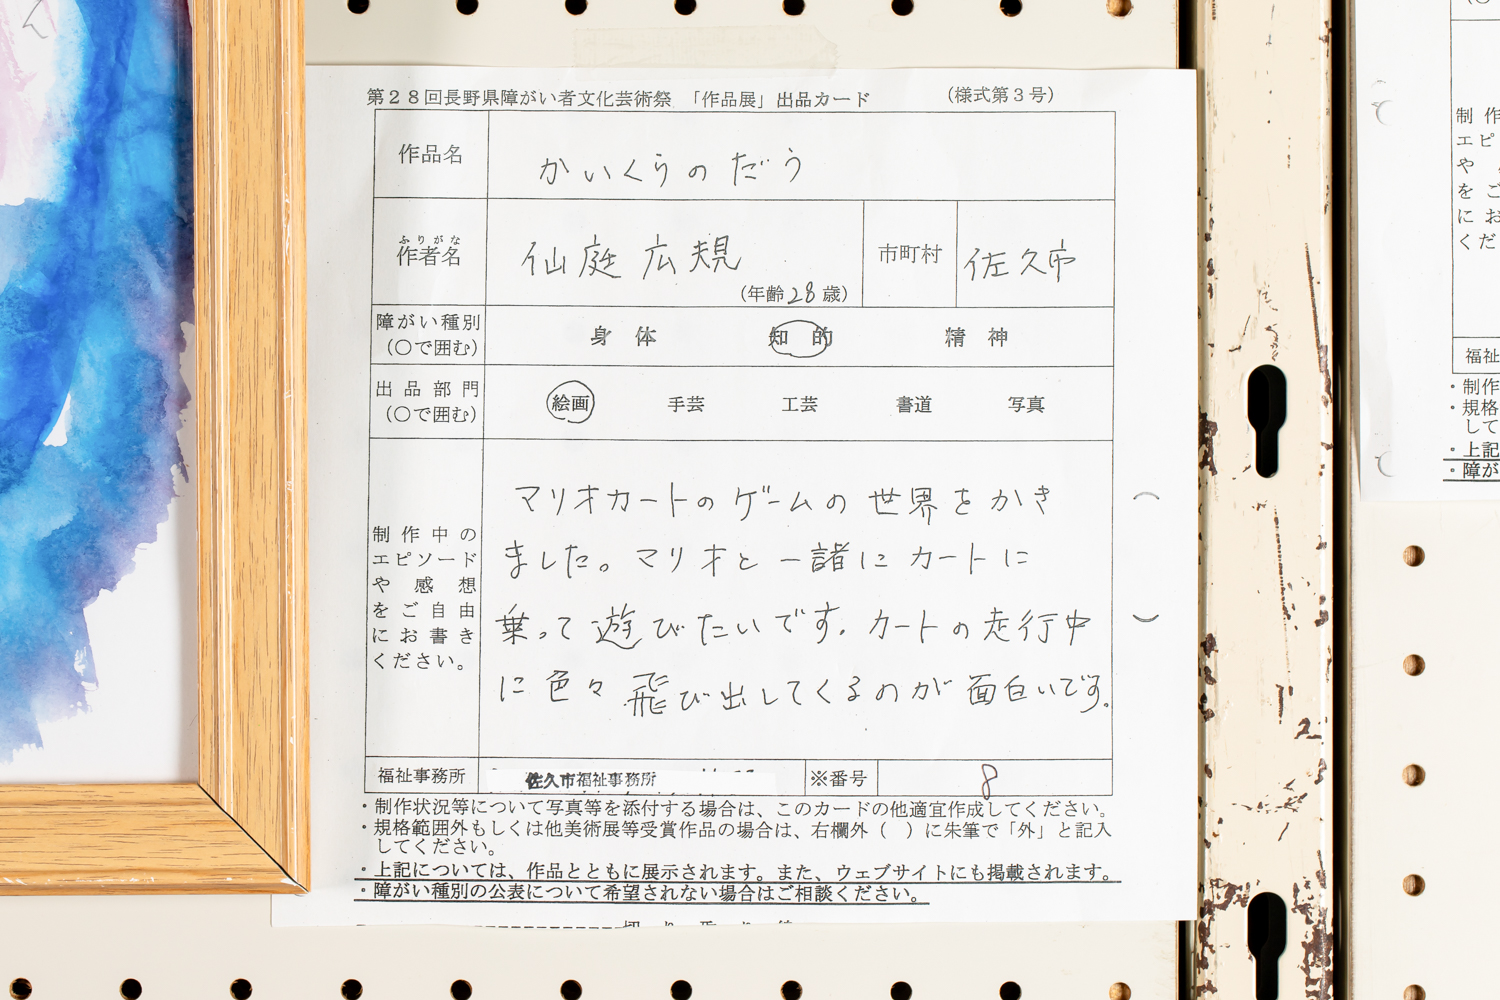 第２８回長野県障がい者文化芸術祭 「作品展」出品カード
（様式第３号）
作品名
かいくらのだう
ふりがな
作者名
仙庭 広規
（年齢28歳）
市町村
佐久市
障がい種別
（〇で囲む）
身 体
知 的
精 神
出品部門
（〇で囲む）
絵画
手芸
工芸
書道
写真
制作中の
エピソード
や感想
をご自由
にお書き
ください。
マリオカートのゲームの世界をかき
ました。マリオと一諸にカートに
乗って遊びたいです。カートの走行中
に色々飛び出してくるのが面白いです。
福祉事務所
佐久市福祉事務所
※番号
8
・制作状況等について写真等を添付する場合は、このカードの他適宜作成してください。
・規格範囲外もしくは他美術展等受賞作品の場合は、右欄外（　）に朱筆で「外」と記入
してください。
・上記については、作品とともに展示されます。また、ウェブサイトにも掲載されます。
・障がい種別の公表について希望されない場合はご相談ください。
制 作
エピ
や
をご
にお
くだ
福祉
・制作
・規格
して
・上記
・障が